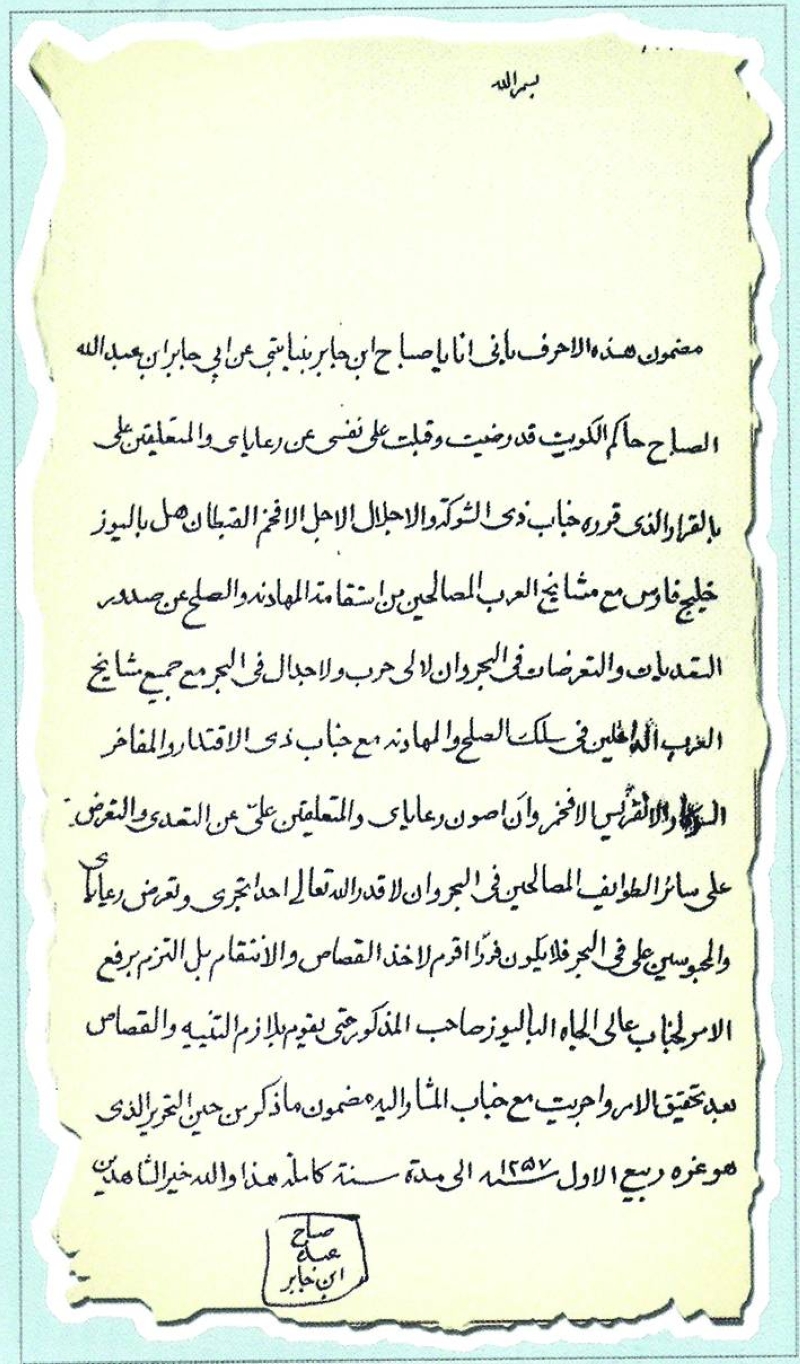 بسم الله
مضمون هذه الاحرف بأني انا يا صباح ابن جابر بنيابتي عن ابي جابر ابن عبد الله
الصباح حاكم الكويت قد رضيت وقبلت على نفسي عن رعاياى والمتعلقين على
بالقرار الذى قرره جناب ذى الشوكة والاجلال الاجل الافخم القبطان هنل باليوز
خليج فارس مع مشايخ العرب المصالحين من استقامة المهادنه والصلح عن صدور
التعديات والتعرضات فى البحر وان لا لى حرب ولا جدال فى البحر مع جميع مشايخ
العرب الداخلين فى سلك الصلح والمهادنه مع جناب ذى الاقتدار والمفاخر
السركار الانقريس الافخم وان اصون رعاياى والمتعلقين علىّ عن التعدى والتعرض
على سائر الطوايف المصالحين فى البحر وان لا قدر الله تعالى احد اتجرى وتعرض رعاياى
والمحبوسين على فى البحر فلا يكون فورًا اقوم لاخذ القصاص والانتقام بل التزم برفع
الامر لجناب عالى الجاه الباليوز صاحب المذكور حتى يقوم بلازم التنبيه والقصاص
بعد تحقيق الامر واجريت مع جناب المشار اليه مضمون ما ذكر من حين التحرير الذى
هو غره ربيع الاول سنه ١٢٥٧ الى مدة سنة كاملة هذا والله خير الشاهدين
صباح
عبده
ابن جابر